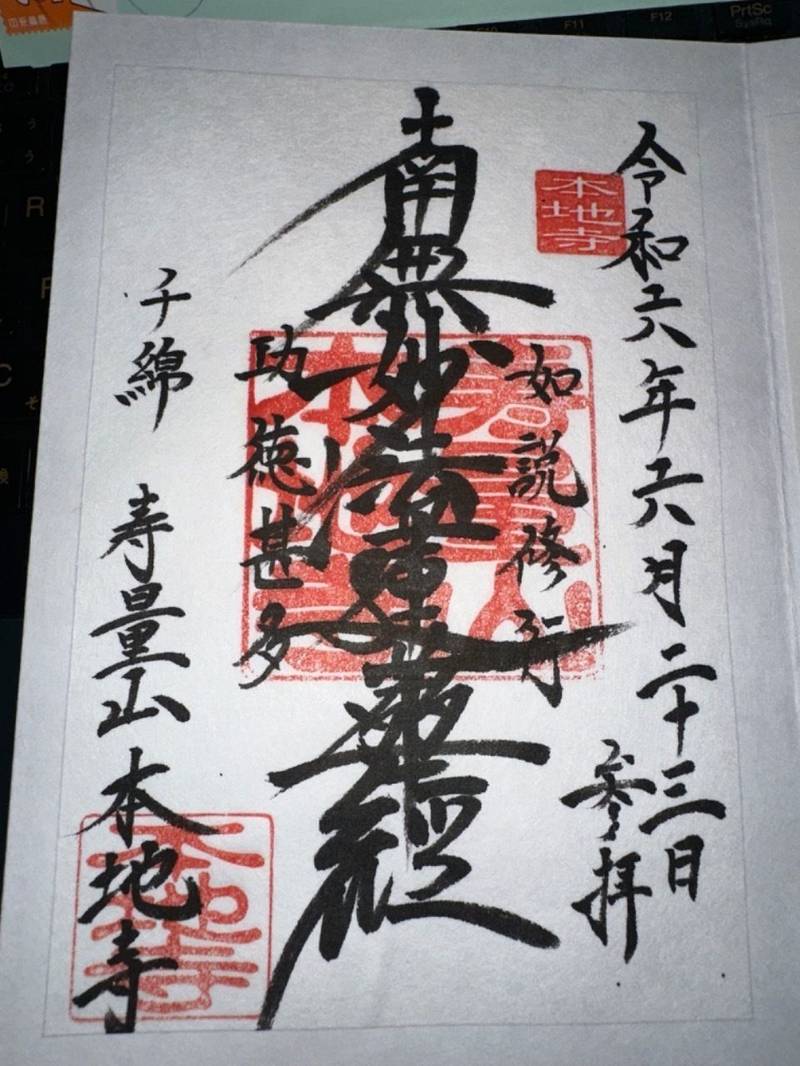 令和六年六月二十三日
参拝
本地寺
如説修行
南無妙法蓮華経
功徳甚多
千綿 寿量山本地寺
本地寺
F11
F12
PrtSc
SysRq